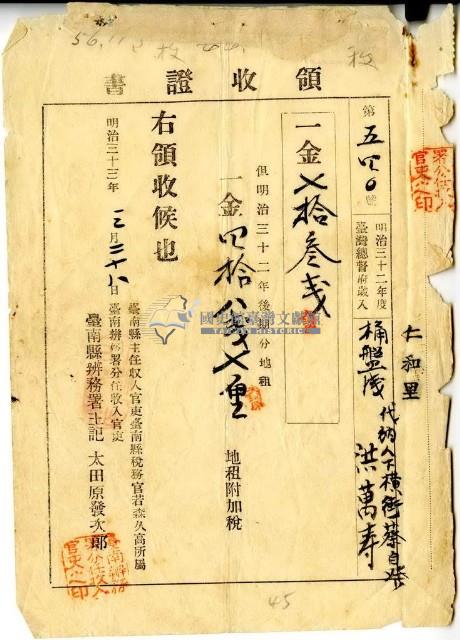 領收證書
第五四〇號
明治三十二年度
臺灣總督府歲入
仁和里
桶盤淺
代納人下橫街蔡自
洪萬壽
一金七拾叁戔
但明治三十二年後期分地租
一金四拾八戔七厘
地租附加稅
右領收候也
明治三十三年三月二十八日
臺南縣主任收入官吏臺南縣稅務官若森久高所屬
臺南辨務署分任收入官吏
臺南縣辨務署主記 太田原發次郎
國史館臺灣文獻館
TAIWAN HISTORICA
45